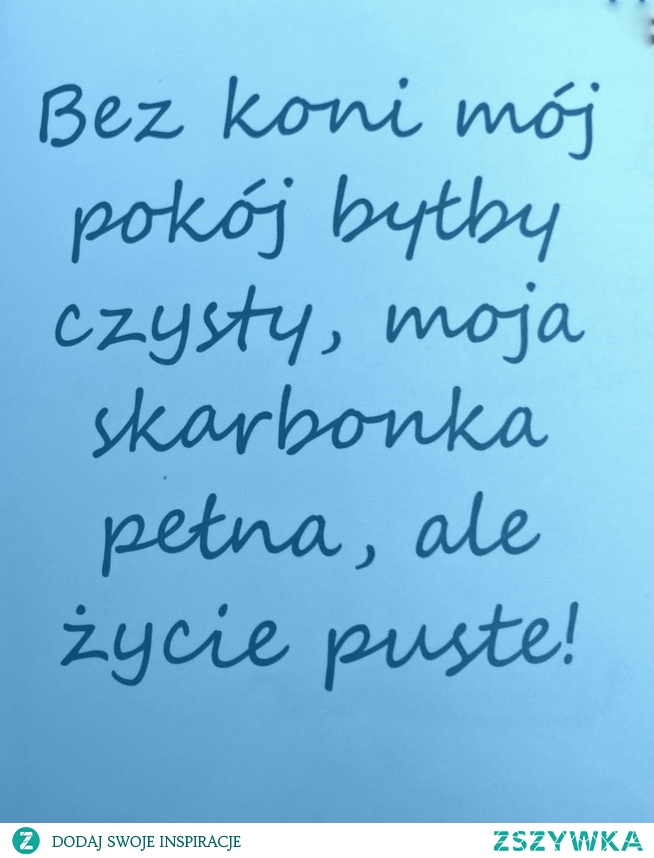 Bez koni mój
pokój byłby
czysty, moja
skarbonka
pełna, ale
życie puste!
DODAJ SWOJE INSPIRACJE
ZSZYWKA